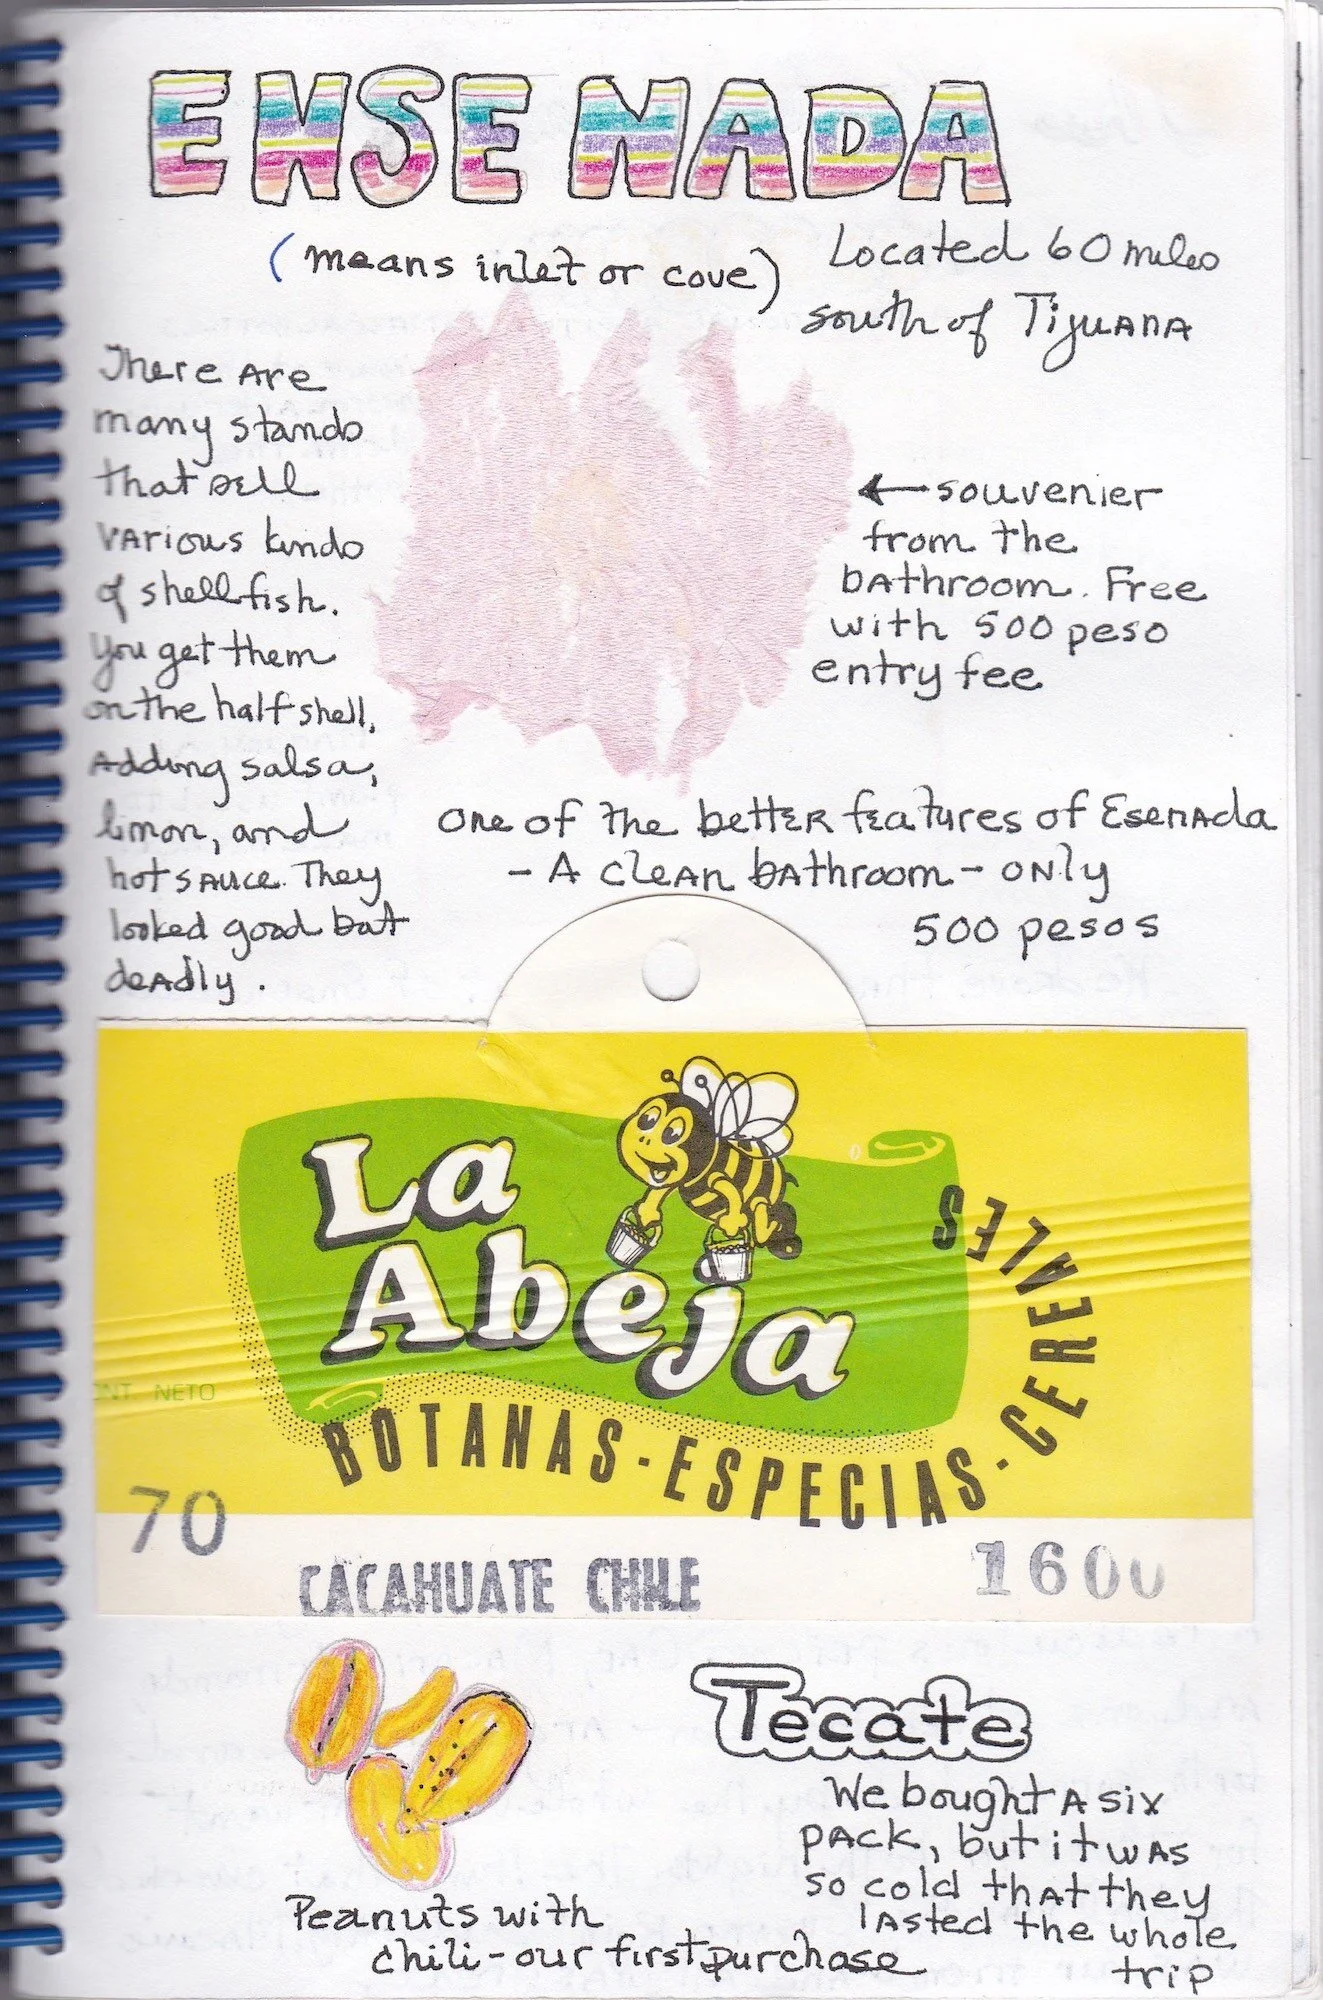 ENSENADA
(means inlet or cove)
Located 60 miles
south of Tijuana
There are
many stands
that sell
various kinds
of shellfish.
You get them
on the half shell,
adding salsa,
limon, and
hot sauce. They
looked good but
deadly.
←souvenier
from the
bathroom. Free
with 500 peso
entry fee
one of the better features of Esenada
- A clean bathroom - only
500 pesos
La
Abeja
BOTANAS-ESPECIAS-CEREALES
ONT. NETO
70
CACAHUATE CHILE
1600
Peanuts with
chili-our first purchase
Tecate
We bought a six
pack, but it was
so cold that they
lasted the whole
trip